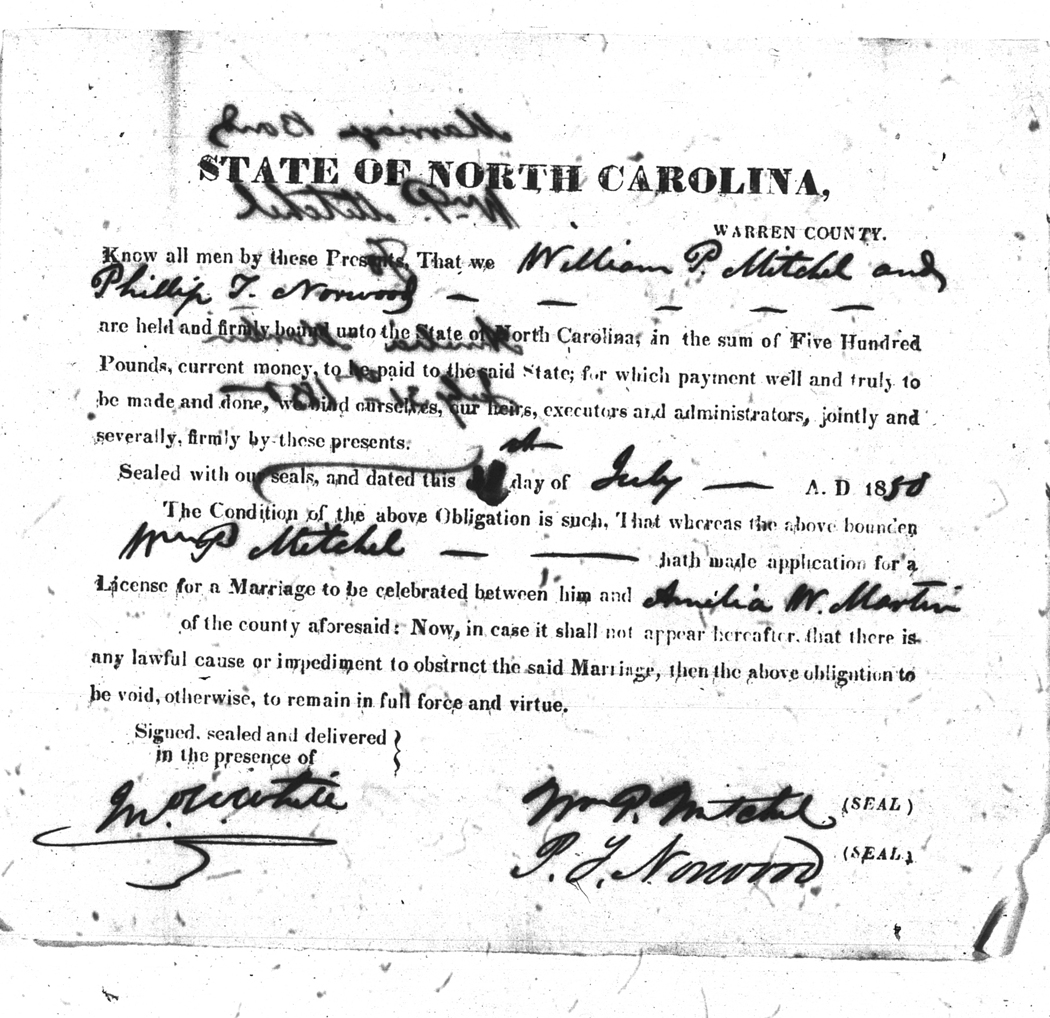 STATE OF NORTH CAROLINA,
WARREN COUNTY.
Know all men by these Presents, That we William P. Mitchel and
Phillip T. Norwood — — — — —
are held and firmly bound unto the State of North Carolina, in the sum of Five Hundred
Pounds, current money, to be paid to the said State; for which payment well and truly to
be made and done, we bind ourselves, our heirs, executors and administrators, jointly and
severally, firmly by these presents.
Sealed with our seals, and dated this st day of July — A. D 1850
The Condition of the above Obligation is such, That whereas the above bounden
Wm P Mitchel — — hath made application for a
License for a Marriage to be celebrated between him and Amelia W. Martin
of the county aforesaid: Now, in case it shall not appear hereafter, that there is
any lawful cause or impediment to obstruct the said Marriage, then the above obligation to
be void, otherwise, to remain in full force and virtue.
Signed, sealed and delivered
in the presence of
White
Wm P. Mitchel (SEAL)
P. T. Norwood (SEAL)